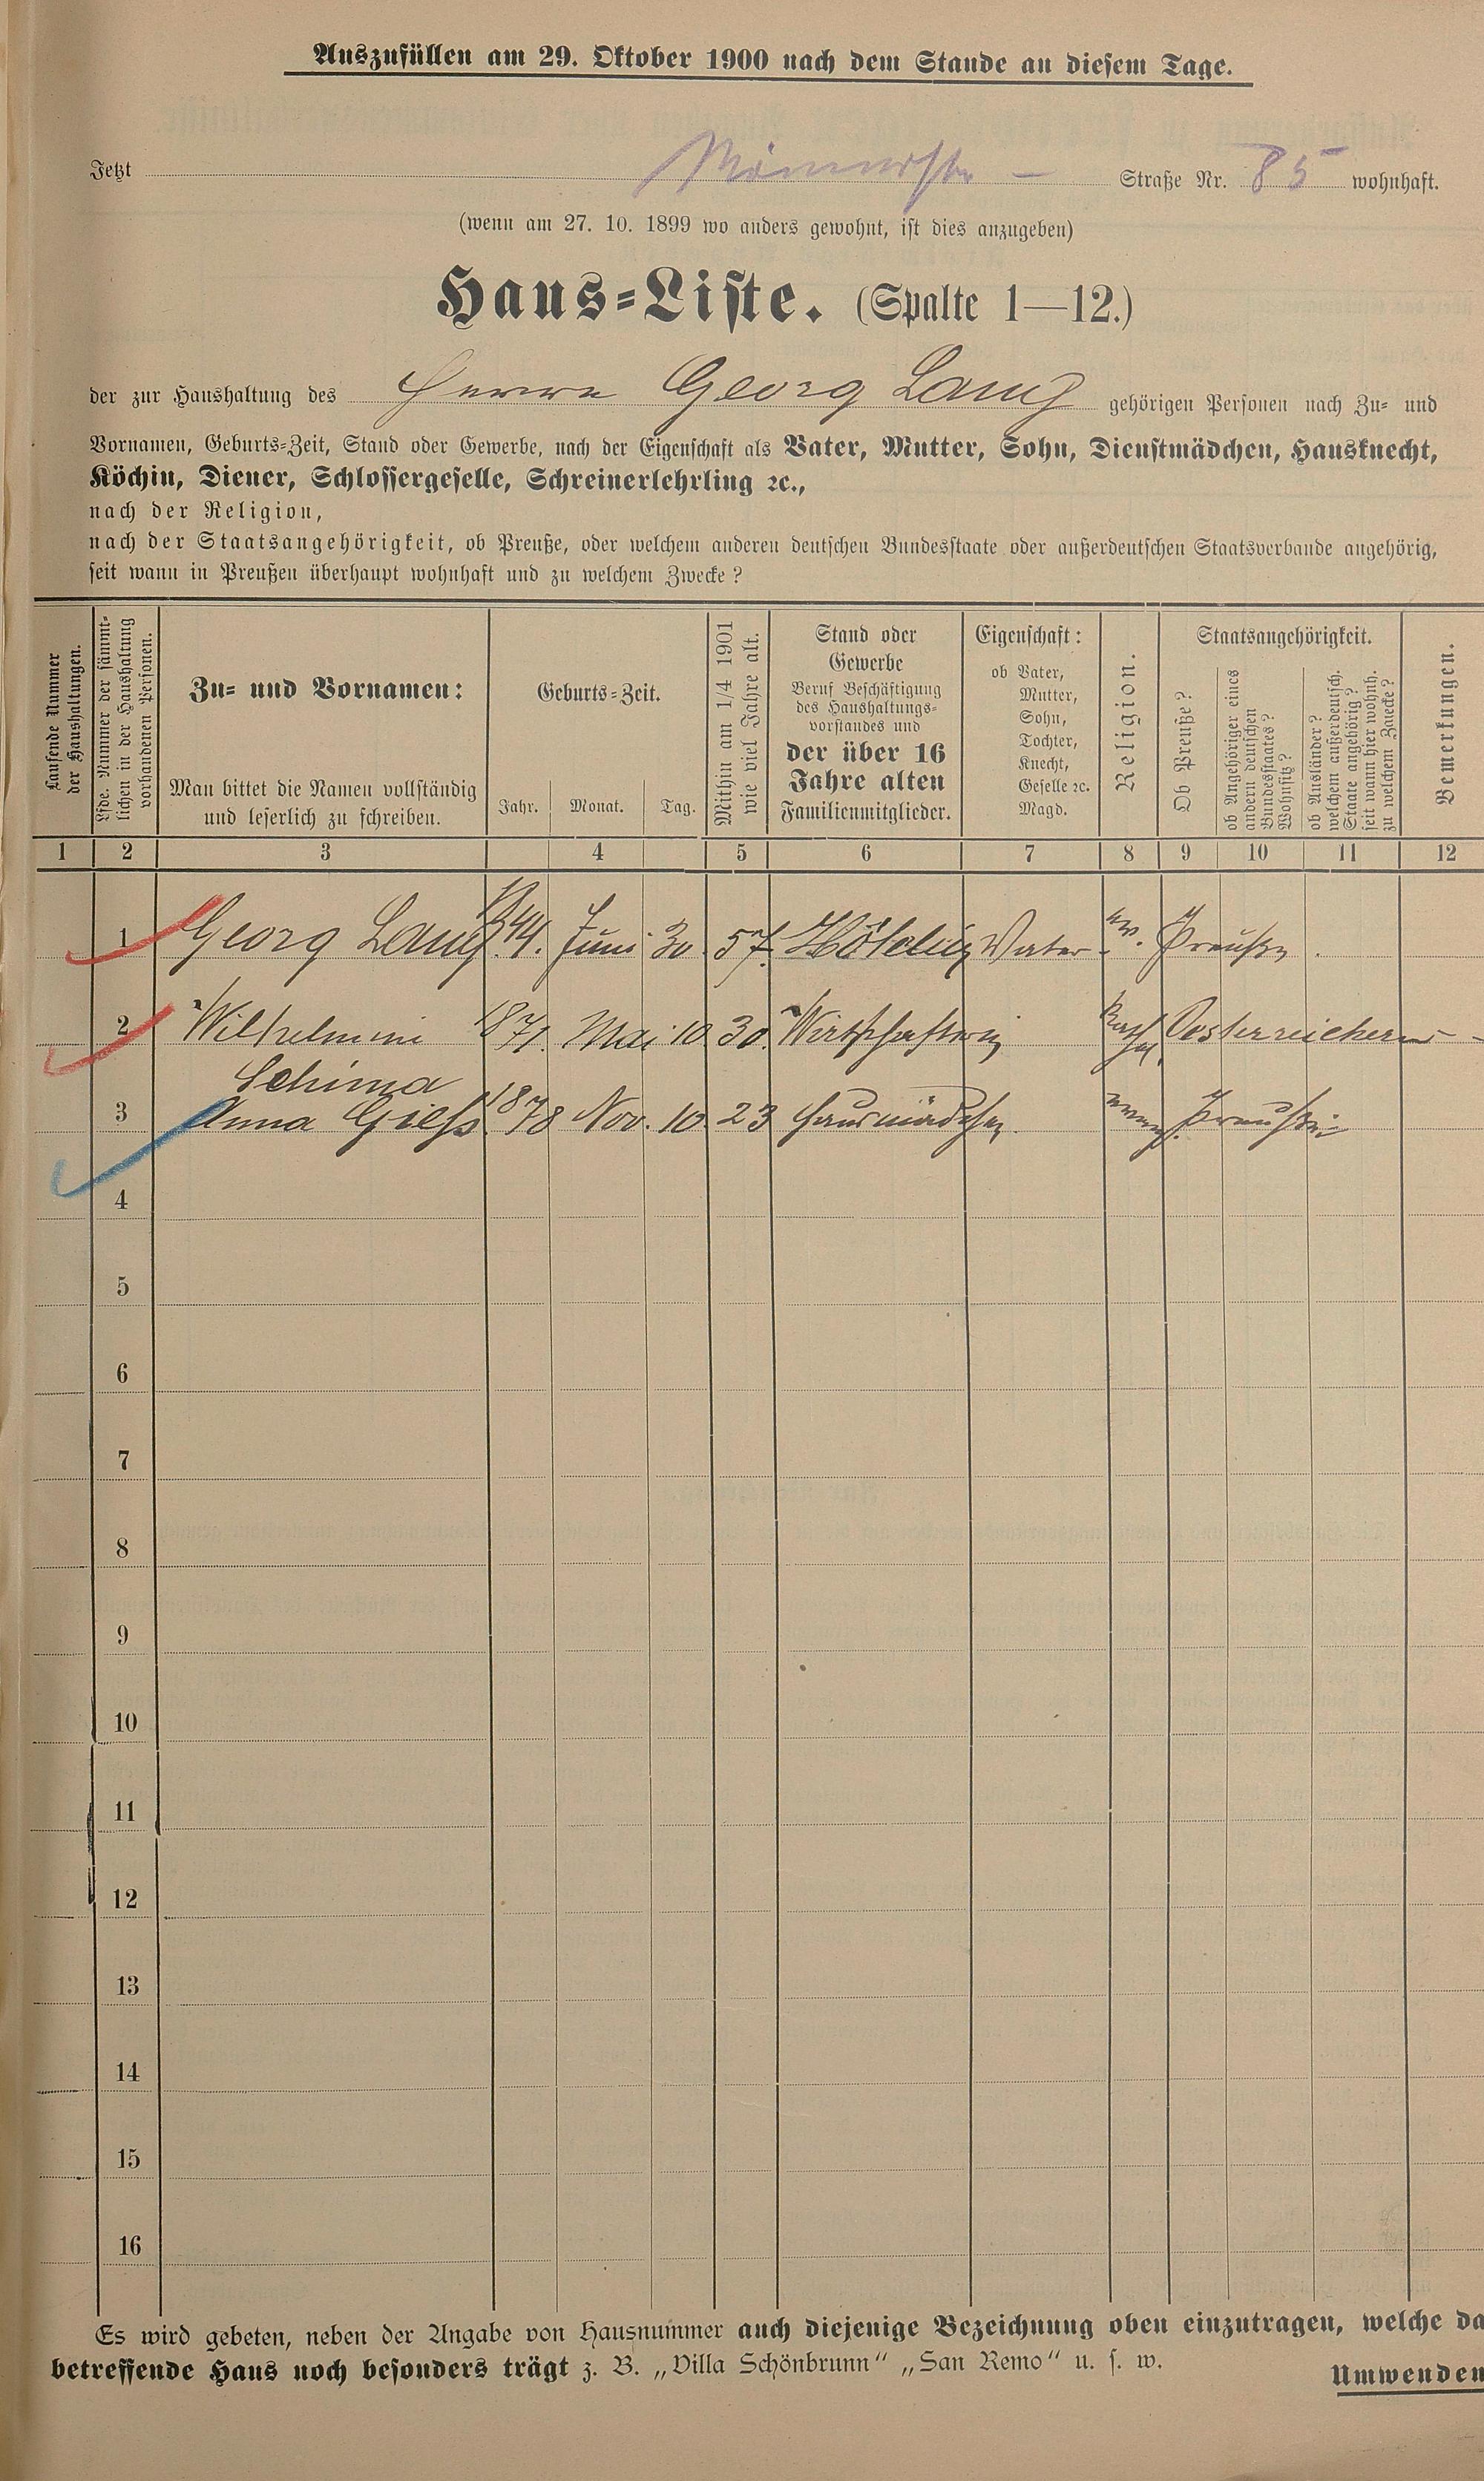 Auszufüllen am 29. Oktober 1900 nach dem Stande an diesem Tage.
Jetzt Straße Nr. 85 wohnhaft.
(wenn am 27. 10. 1899 wo anders gewohnt, ist dies anzugeben)
Haus-Liste. (Spalte 1—12.)
der zur Haushaltung des Herrn Georg Lang gehörigen Personen nach Zu- und
Vornamen, Geburts-Zeit, Stand oder Gewerbe, nach der Eigenschaft als Vater, Mutter, Sohn, Dienstmädchen, Hausknecht,
Köchin, Diener, Schlossergeselle, Schreinerlehrling ꝛc.,
nach der Religion,
nach der Staatsangehörigkeit, ob Preuße, oder welchem anderen deutschen Bundesstaate oder außerdeutschen Staatsverbande angehörig,
seit wann in Preußen überhaupt wohnhaft und zu welchem Zwecke?
Laufende Nummer
der Haushaltungen.
Lfde. Nummer der sämmt-
lichen in der Haushaltung
vorhandenen Personen.
Zu- und Vornamen:
Man bittet die Namen vollständig
und leserlich zu schreiben.
Geburts-Zeit.
Jahr. Monat. Tag.
Mithin am 1/4 1901
wie viel Jahre alt.
Stand oder
Gewerbe
Beruf Beschäftigung
des Haushaltungs-
vorstandes und
der über 16
Jahre alten
Familienmitglieder.
Eigenschaft:
ob Vater,
Mutter,
Sohn,
Tochter,
Knecht,
Geselle ꝛc.
Magd.
Religion.
Staatsangehörigkeit.
Ob Preuße?
ob Angehöriger eines
andern deutschen
Bundesstaates?
Wohnsitz?
ob Ausländer?
welchem außerdeutsch.
Staate angehörig?
seit wann hier wohnh.
zu welchem Zwecke?
Bemerkungen.
1 2 3 4 5 6 7 8 9 10 11 12
1 Georg Lang 1844. Juni 30. 57. Vater Preuße
2 Wilhelmine 1871. Mai 10. 30. Kath. Oesterreicherin
Schima
3 Anna Gieß 1878 Nov. 10. 23 Hausmädchen evang. Preußin
4
5
6
7
8
9
10
11
12
13
14
15
16
Es wird gebeten, neben der Angabe von Hausnummer auch diejenige Bezeichnung oben einzutragen, welche da
betreffende Haus noch besonders trägt z. B. „Villa Schönbrunn“ „San Remo“ u. s. w.
Umwenden